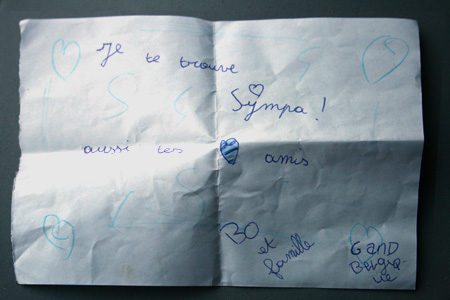 Je te trouve
Sympa !
aussi tes amis
BO
et
famille
GanD
Belgiq
ue